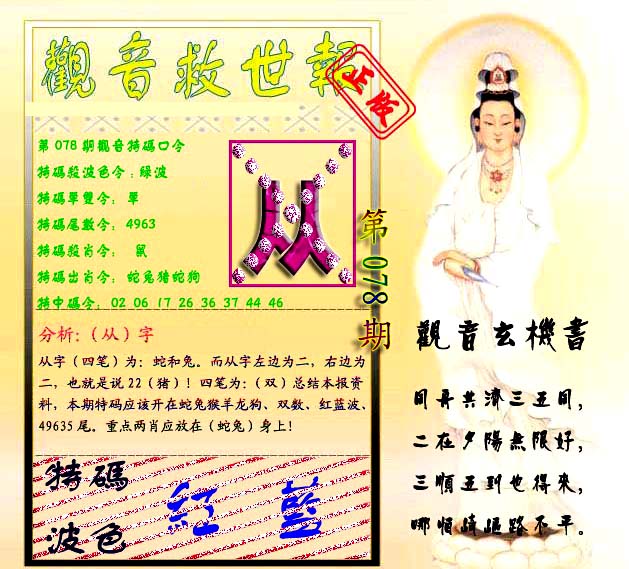 觀音救世報
正版
第078期觀音特碼口令
特碼殺波色令:綠波
特碼單雙令: 單
特碼尾數令: 4963
特碼殺肖令: 鼠
特碼出肖令: 蛇兔猪蛇狗
特中碼令: 02 06 17 26 36 37 44 46
从
第078期
分析:(从)字
从字(四笔)为:蛇和兔。而从字左边为二,右边为
二,也就是说22(猪)!四笔为:(双)总结本报资
料,本期特码应该开在蛇兔猴羊龙狗、双数、红蓝波、
49635尾。重点两肖应放在(蛇兔)身上!
特碼
波色
紅 藍
觀音玄機書
同舟共濟三五同,
二在夕陽無限好,
三順五到也得來,
哪怕崎嶇路不平。